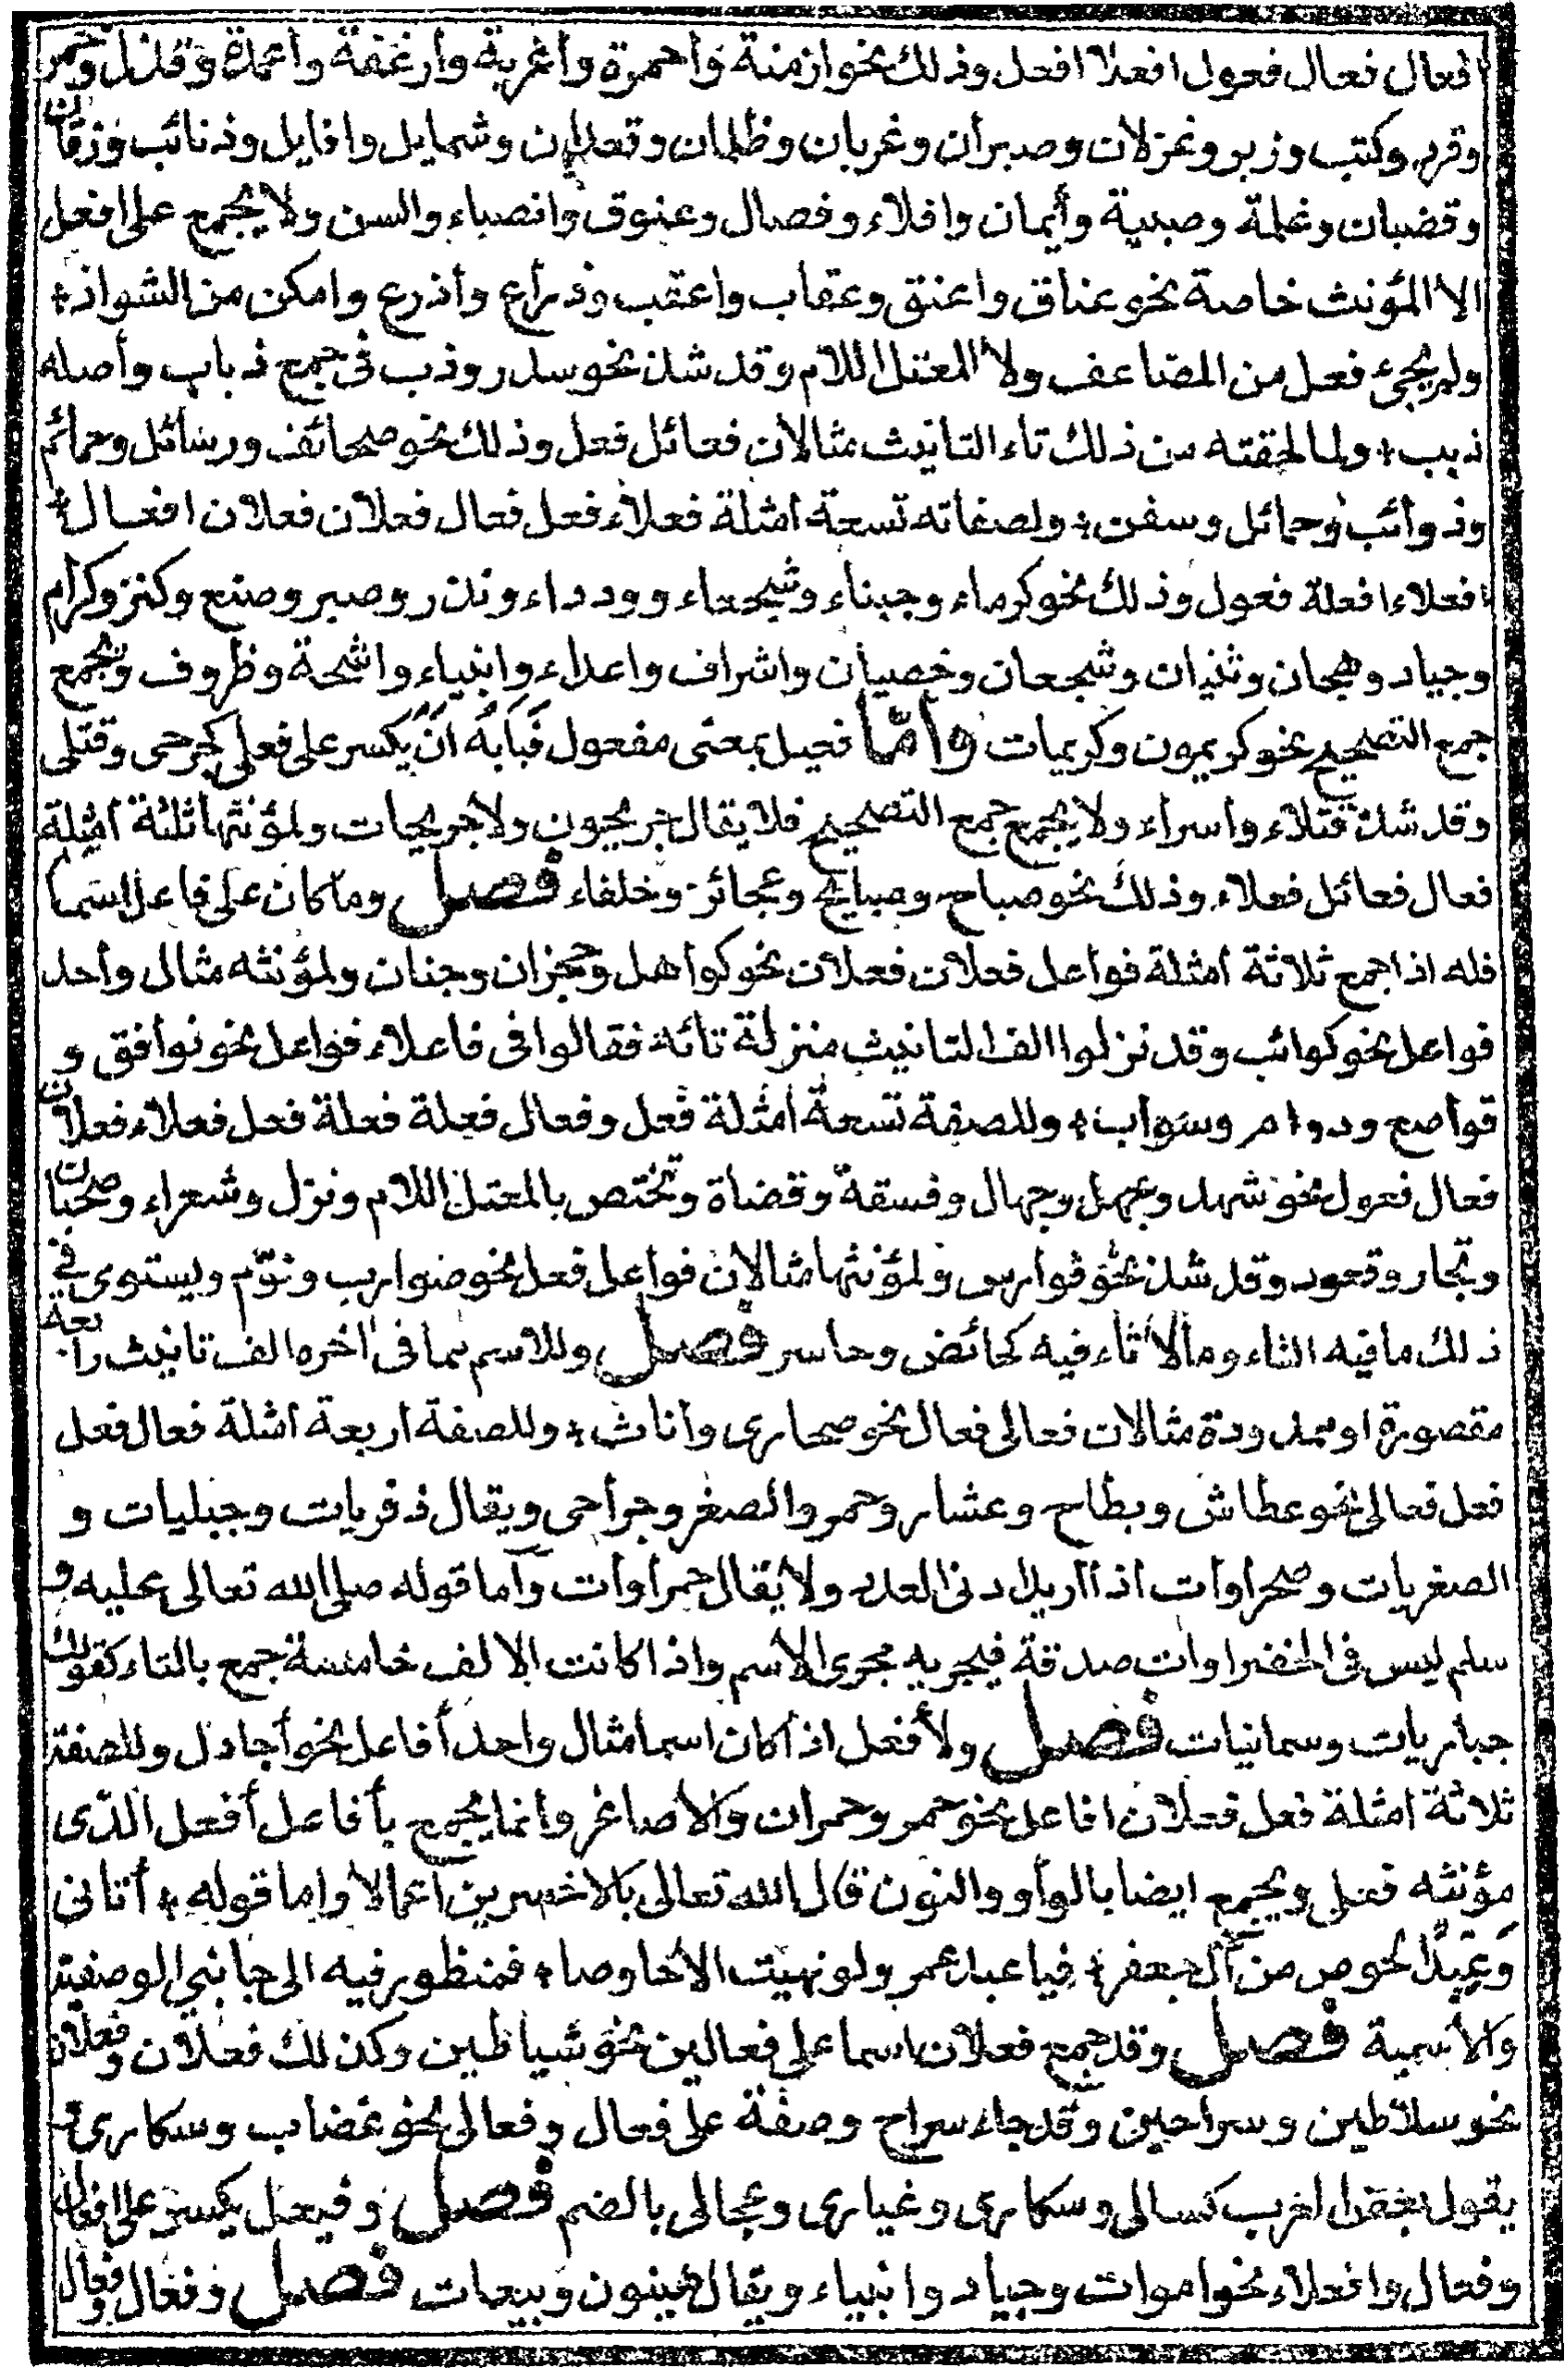 افعال فعال فعول افعلاء افعل وذلك نحو ازمنة وأحمرة وأغربة وأرغفة وأعمدة وقذل وحمر
وقرد وكتب وزبر وغزلان وصيران وغربان وظلمان وقعدان وشمايل وافايل وذنائب وزقان
وقضبان وغلمة وصبية وأيمان وافلاء وفصال وعنوق وانصباء والسن ولا يجمع على افعل
الا المؤنث خاصة نحو عناق واعنق وعقاب واعقب وذراع وأذرع وامكن من الشواذ
ولم يجئ فعل من المضاعف ولا المعتل اللام وقد شذ نحو سدر وذب فى جمع ذباب وأصله
ذبب ولما لحقته من ذلك تاء التانيث مثالان فعائل فعل وذلك نحو صحائف ورسائل وحمائم
وذوائب وحمائل وسفن ولصفاته تسعة امثلة فعلاء فعل فعال فعلان فعلان افعال
افعلاء افعلة فعول وذلك نحو كرماء وجبناء وشجعاء وودداء ونذر وصبر وصنع وكنز وكرام
وجياد وهجان وثنيان وشجعان وخصيان واشراف واعداء وانبياء واشحة وظروف ويجمع
جمع التصحيح نحو كريمون وكريمات وأمّا فعيل بمعنى مفعول فبابه ان يكسر على فعلى كجرحى وقتلى
وقد شذ قتلاء واسراء ولا يجمع جمع التصحيح فلا يقال جريحون ولا جريحات ولمؤنثها ثلثة امثلة
فعال فعائل فعلاء وذلك نحو صباح وصبايح وعجائز وخلفاء فصل وما كان على فاعل اسما
فله اذا جمع ثلاثة امثلة فواعل فعلان فعلان نحو كواهل وحجزان وجنان ولمؤنثه مثال واحد
فواعل نحو كواثب وقد نزلوا الف التانيث منزلة تائه فقالوا فى فاعلاء فواعل نحو نوافق و
قواصع ودوام وسواب وللصفة تسعة أمثلة فعل وفعال فعلة فعلة فعل فعلاء فعلان
فعال فعول نحو شهد وجهل وجهال وفسقة وقضاة وتختص بالمعتل اللام ونزل وشعراء وصحبان
وتجار وقعود وقد شذ نحو فوارس ولمؤنثها مثالان فواعل فعل نحو ضوارب ونوّم ويستوى في
ذلك ما فيه التاء وما لا تاء فيه كحائض وحاسر فصل وللاسم مما فى اخره الف تانيث رابعة
مقصورة او ممدودة مثالان فعالى فعال نحو صحارى واناث وللصفة اربعة امثلة فعال فعل
فعل فعالى نحو عطاش وبطاح وعشار وحمر والصغر وجراحى ويقال ذفريات وجبليات و
الصغريات وصحراوات اذا اريد ادنى العدد ولا يقال حمراوات وأما قوله صلى الله تعالى عليه و
سلم ليس فى الخضراوات صدقة فيجريه مجرى الاسم واذا كانت الالف خامسة جمع بالتاء كقولك
حباريات وسمانيات فصل ولأفعل اذا كان اسما مثال واحد أفاعل نحو أجادل وللصفة
ثلاثة امثلة فعل فعلان افاعل نحو حمر وحمران والاصاغر وانما يجمع بأفاعل أفعل الذى
مؤنثه فعلى ويجمع ايضا بالواو والنون قال الله تعالى بالاخسرين اعمالا واما قوله أتانى
وعيد الحوص من آل جعفر فيا عبد عمر ولو نهيت الأحاوصا فمنظور فيه الى جانبي الوصفية
والاسمية فصل وقد جمع فعلان اسما على فعالين نحو شياطين وكذلك فعلان وفعلان
نحو سلاطين وسراحين وقد جاء سراح وصفة على فعال وفعالى نحو غضاب وسكارى و
يقول بعض العرب كسالى وسكارى وغيارى وعجالى بالضم فصل وفيعل يكسر على افعال
وفعال وافعلاء نحو اموات وجياد وانبياء ويقال هينون وبيعات فصل وفعال وفعال